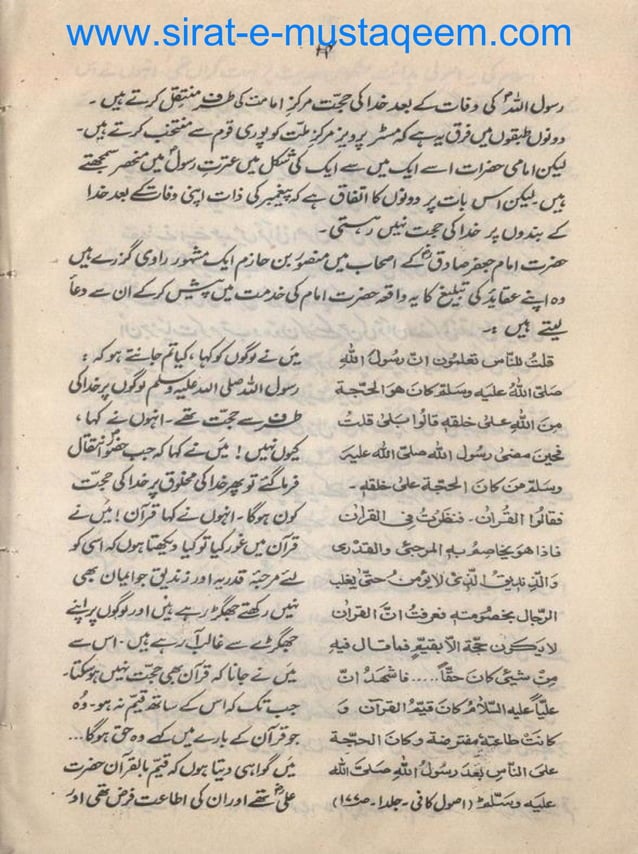 www.sirat-e-mustaqeem.com
رسول اللہ کی وفات کے بعد خدا کی حجت مرکزِ امامت کی طرف منتقل کرتے ہیں۔
دونوں طبقوں میں فرق یہ ہے کہ مسٹر پرویز مرکزِ ملّت کو پوری قوم سے منتخب کرتے ہیں۔
لیکن امامی حضرات اسے ایک میں سے ایک کی شکل میں عترتِ رسولؐ میں منحصر سمجھتے
ہیں۔ لیکن اس بات پر دونوں کا اتفاق ہے کہ پیغمبر کی ذات اپنی وفات کے بعد خدا
کے بندوں پر خدا کی حجت نہیں رہستی۔
حضرت امام جعفر صادقؒ کے اصحاب میں منصور بن حازم ایک مشہور راوی گزرے ہیں
وہ اپنے عقاید کی تبلیغ کا یہ واقعہ حضرت امام کی خدمت میں پیش کرکے ان سے دعا
لیتے ہیں :۔
قلتُ للنّاس تعلمون انّ رسولُ اللهِ
صلّی اللهُ علیه وسلّم کان هو الحجّة
مِنَ اللهِ علیٰ خلقهٖ قالُوا بلیٰ قلتُ
فحین مضیٰ رسُول الله صلّی الله علیہ
وسلّم مَن کانَ الحجّة علیٰ خلقهٖ۔
فقالُوا القُراٰن۔ فنظرتُ فی القراٰن
فاذا هو یخاصِمُ به المرجئی والقدری
وَالزِّندیق الّذی لا یؤمنُ حتّیٰ یغلب
الرّجال بخصُومتهٖ فعرفتُ انّ القراٰن
لا یکون حجّة الّا بقیّم فما قال فیهِ
مِنْ شیئٍ کان حقّاً..... فاشهدُ انّ
علیّاً علیه السّلامُ کانَ قیّم القراٰن وَ
کانتْ طاعتهٗ مفترضة وکان الحجّة
علی النّاسِ بَعدَ رسُولُ اللهِ صلّی الله
علیه وسلّم (اصول کافی۔ جلد ا۔ ص ۱۷۷)
میں نے لوگوں کو کہا، کیا تم جانتے ہو کہ :
رسول اللہ صلی اللہ علیہ وسلم لوگوں پر خدا کی
طرف سے حجت تھے۔ انہوں نے کہا،
کیوں نہیں! میں نے کہا کہ جب حضورؐ انتقال
فرما گئے تو پھر خدا کی مخلوق پر خدا کی حجت
کون ہوگا۔ انہوں نے کہا قرآن! میں نے
قرآن میں غور کیا تو کیا دیکھتا ہوں کہ اسی کو
لئے مرجئہ قدریہ اور زندیق جو ایمان بھی
نہیں رکھتے جھگڑ رہے ہیں اور لوگوں پر اپنے
جھگڑے سے غالب آ رہے ہیں۔ اس سے
میں نے جانا کہ قرآن بھی حجت نہیں ہو سکتا۔
جب تک کہ اس کے ساتھ قیّم نہ ہو۔ وہ
جو قرآن کے بارے میں کہے وہ حق ہوگا...
میں گواہی دیتا ہوں کہ قیّم بالقرآن حضرت
علیؓ تھے اور ان کی اطاعت فرض تھی اور